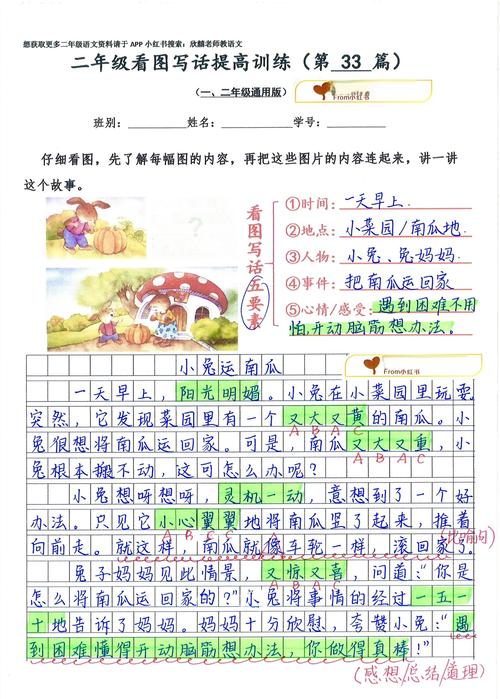 想获取更多二年级语文资料请于 APP 小红书搜索：欣麟老师教语文
二年级看图写话提高训练（第 33 篇）
（一、二年级通用版）
From小红书
班别： 姓名： 学号：
仔细看图，先了解每幅图的内容，再把这些图片的内容连起来，讲一讲
这个故事。
?
看图写话五要素
①时间：一天早上.
②地点：小菜园/南瓜地
③人物：小兔、兔妈妈.
④事件：把南瓜运回家
⑤心情/感受：遇到困难不用
怕,开动脑筋想办法。
小兔运南瓜
From小红书
一天早上，阳光明媚。小兔在小菜园里玩耍
突然，它发现菜园里有一个又大又黄的南瓜。小
A B A C
兔很想将南瓜运回家。可是，南瓜又大又重，小
A B A C
兔根本搬不动，这可怎么办呢？
小兔想呀想呀，灵机一动，意想到了一个好
办法。只见它小心翼翼地将南瓜竖了起来，推着
A B C C
向前走。就这样，南瓜就像车轮一样，滚回家了。
(比喻句)
兔子妈妈见此情景，又惊又喜，问道：“你是
A B A C
怎么将南瓜运回家的？”小兔将事情的经过一五一
十地告诉了妈妈。妈妈十分欣慰，夸赞小兔：“遇
到困难懂得开动脑筋想办法，你做得真棒！”
(感想/总结/道理)